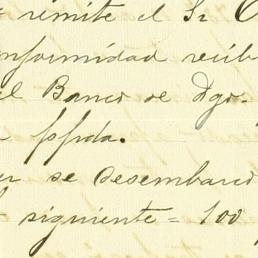 remite el Sr
conformidad recib
el Banco de Dgo.
ppda.
se desembarco
siguiente = 100